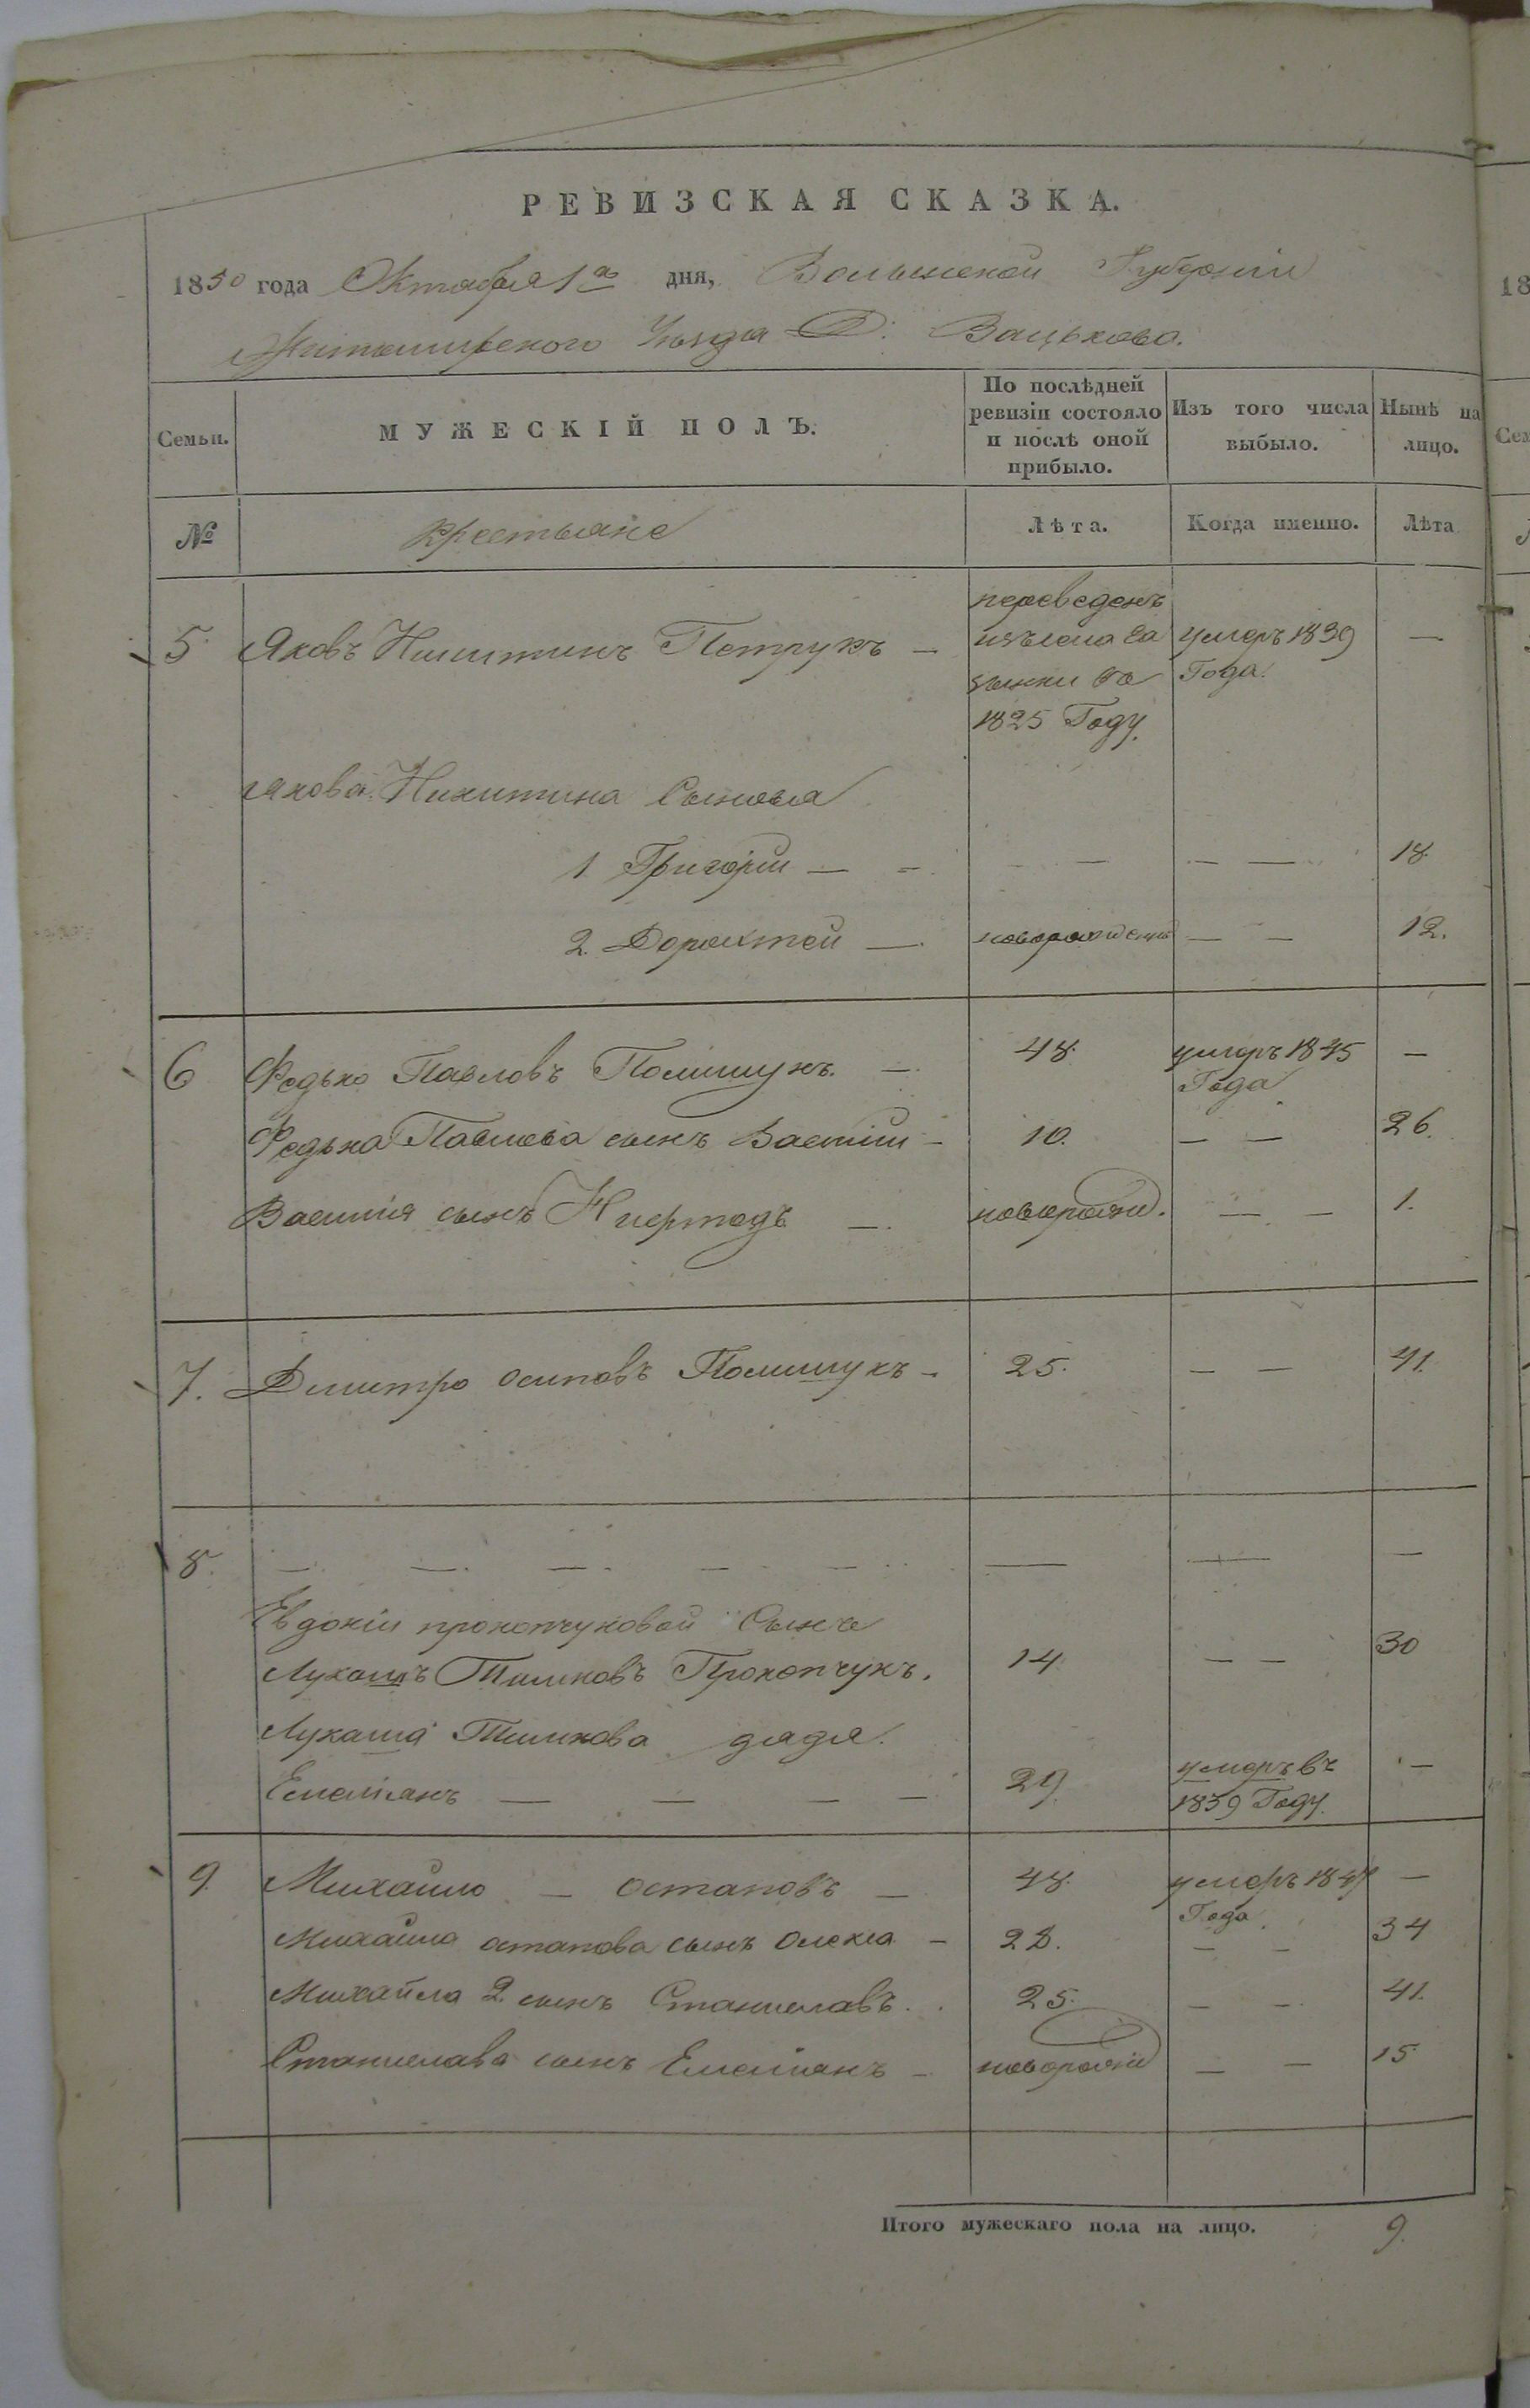 РЕВИЗСКАЯ СКАЗКА.
1850 года Октября 1го дня, Волынской Губернiи
Житомирского Уезда Д: Вацьково.
Семьи. МУЖЕСКIЙ ПОЛЪ. По послѣдней ревизiи состояло и послѣ оной прибыло. Изъ того числа выбыло. Нынѣ на лицо.
№ Крестьяне Лѣта. Когда именно. Лѣта
5 Яковъ Никитинъ Петрукъ — переведенъ изъ села 1825 Году. умеръ 1839 Года. —
Якова Никитина Сыновья
1 Григорiи — — — — — 18.
2. Дорохтей — новорожденъ — — 12.
6 Федько Павловъ Полишукъ. — 48. умеръ 1845 Года —
Федька Павлова сынъ Василiи — 10. — — 26.
Василiя сынъ — новорожд. — — 1.
7. Дмитро Осиповъ Полишукъ — 25. — — 41.
8. — — — — — — — —
Евдокiи прокопчуковой Сынъ
Лукашъ Тимковъ Прокопчукъ. 14 — — 30
Лукаша Тимкова дядя.
Емелiянъ — — — — 29. умеръ въ 1839 Году. —
9. Михайло — Остаповъ — 48. умеръ 1847 Года —
Михайла остапова сынъ Олекса — 28. — — 34
Михайла 2. сынъ Станиславъ. 25. — — 41.
Станислава сынъ Емелiянъ — новорожд — — 15
Итого мужескаго пола на лицо. 9.
18